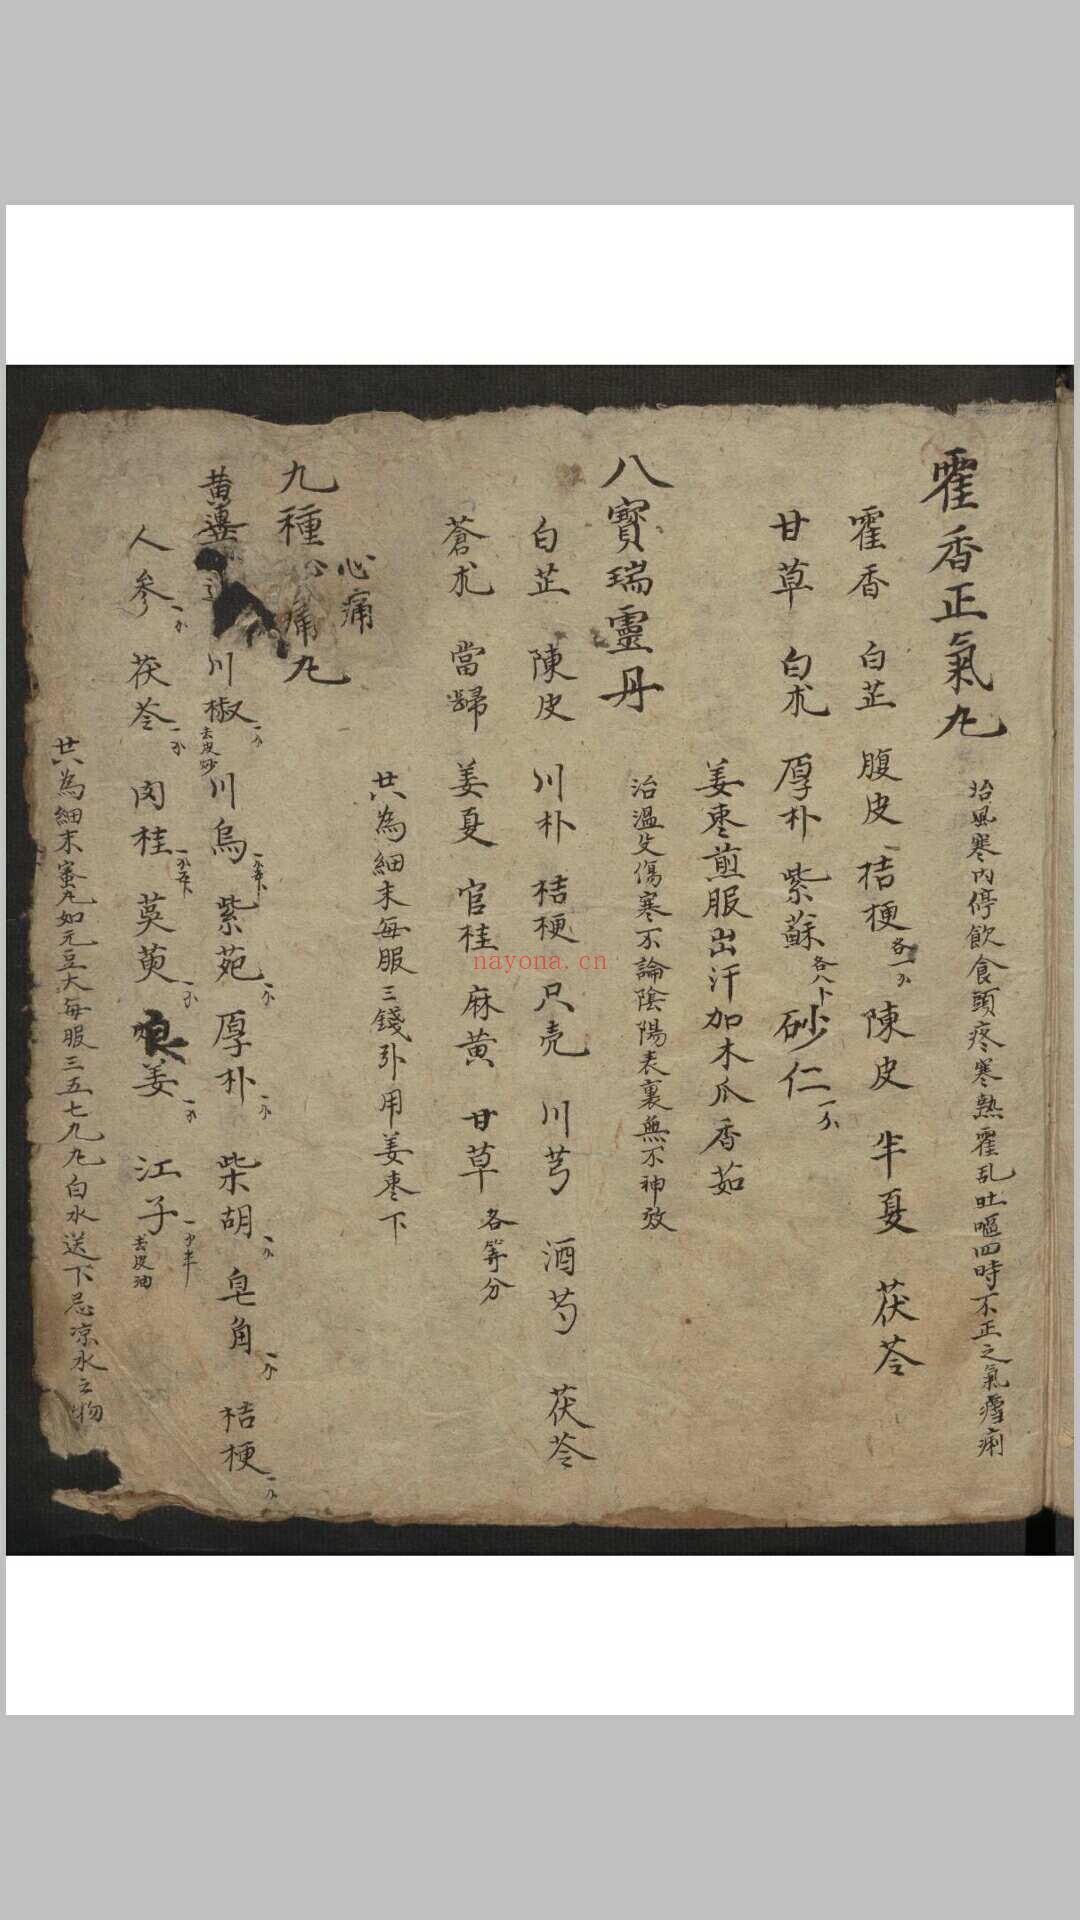 霍香正氣丸
治風寒內停飲食頭疼寒熱霍乱吐嘔四時不正之氣瘧痢
霍香 白芷 腹皮 桔梗各一 陳皮 半夏 茯苓
甘草 白朮 厚朴 紫蘇各八卜 砂仁一
姜枣煎服出汗加木瓜香茹
八寳瑞靈丹
治溫 傷寒不論陰陽表裏無不神效
白芷 陳皮 川朴 桔梗 只壳 川芎 酒芍 茯苓
蒼朮 當歸 姜夏 官桂 麻黄 甘草 各等分
共為細末每服三錢引用姜枣下
心痛
九種心痛丸
黄連 川椒去皮炒 川烏 紫苑 厚朴 柴胡 皂角 桔梗
人參 茯苓 肉桂 萸 姜 江子去皮油
共為細末蜜丸如元豆大每服三五七九丸白水送下忌凉水之物
nayona.cn